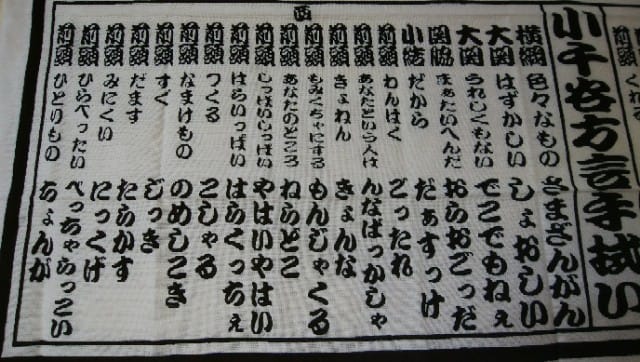 小千谷方言手拭い
西
横綱 色々なもの さまざんがん
大関 はずかしい しょおしい
大関 うれしくもない でこでもねぇ
関脇 まぁたいへんだ おらおごっだ
小結 だから だぁすっけ
前頭 わんぱく ごったれ
前頭 あなたという人は んなばっかしゃ
前頭 きょねん きょんな
前頭 もみくちゃにする もんじゃくる
前頭 あなたのところ ねらどこ
前頭 しっぱいしっぱい やはいやはい
前頭 はらいっぱい はらくっちぇ
前頭 つくる こしゃる
前頭 なまけもの のめしこき
前頭 すぐ じっき
前頭 だます たらかす
前頭 みにくい にっくげ
前頭 ひらべったい べっちゃらっこい
前頭 ひとりもの ちょんが